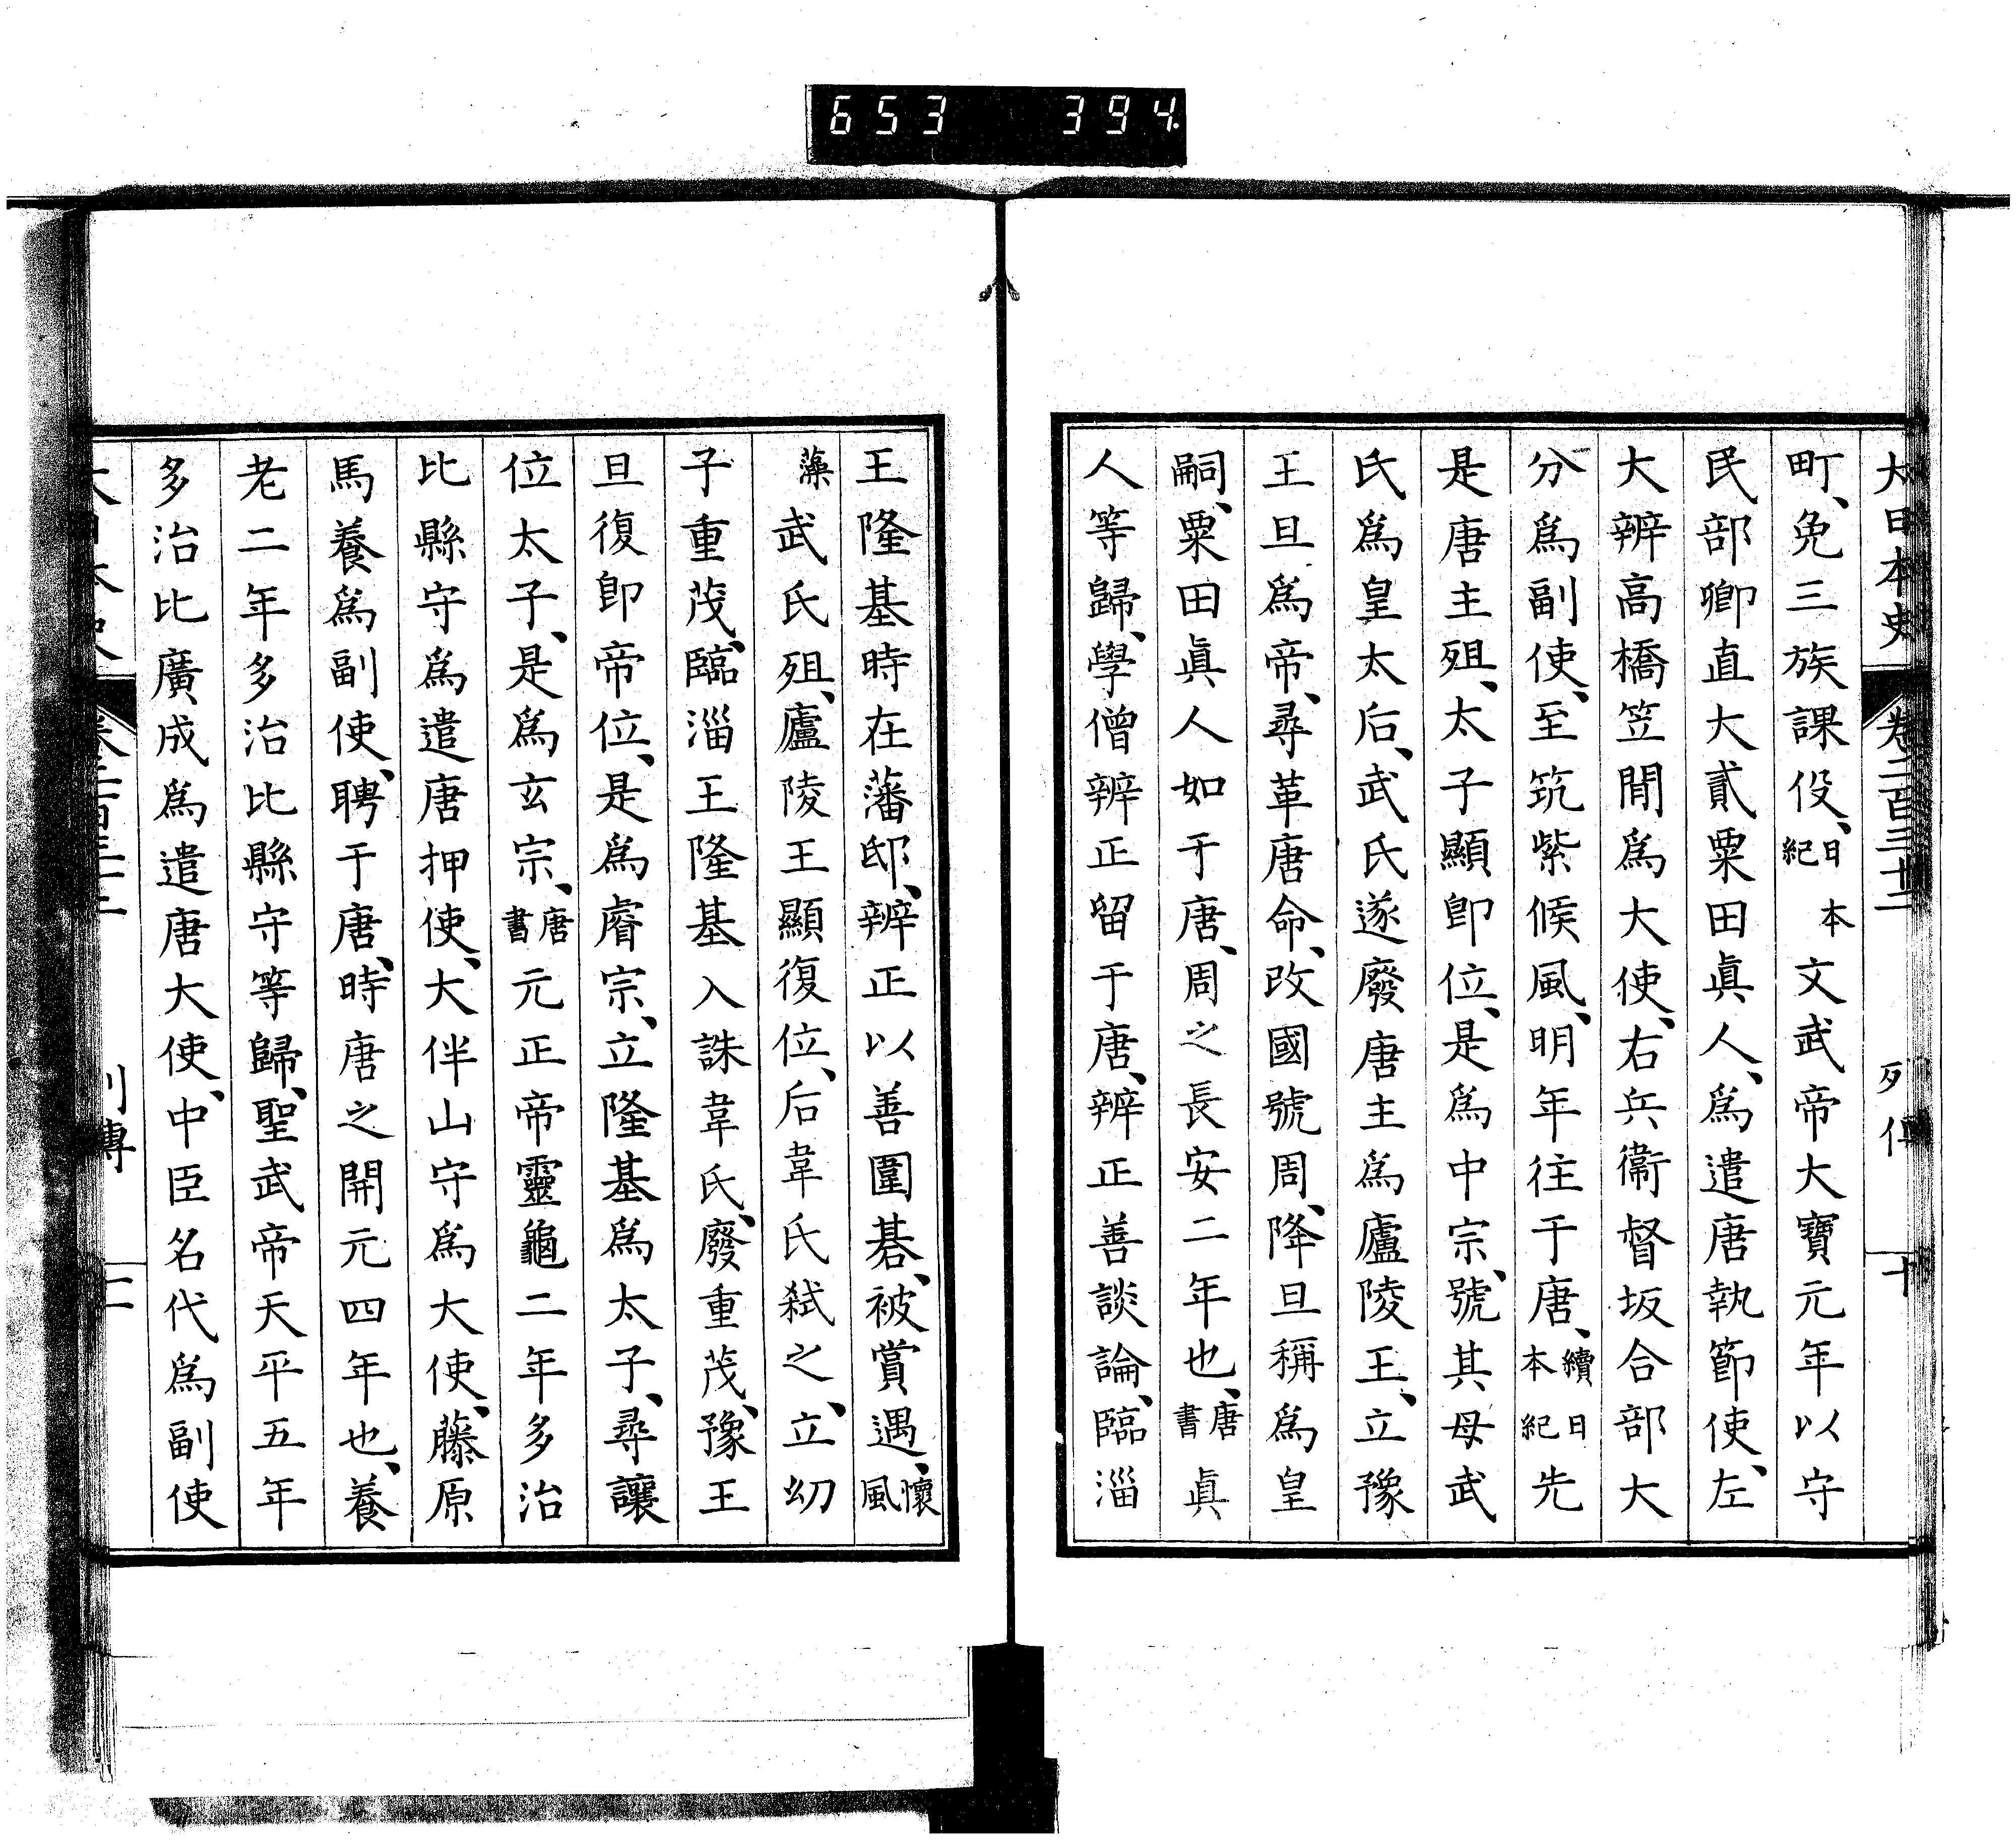 653 394.
大日本史 卷二百三十二 列傳 十
町、免三族課役、日本紀文武帝大寶元年以守
民部卿直大貳粟田眞人、爲遣唐執節使、左
大辨高橋笠間爲大使、右兵衞督坂合部大
分爲副使、至筑紫候風、明年往于唐、續日本紀先
是唐主殂、太子顯卽位、是爲中宗、號其母武
氏、爲皇太后、武氏遂廢唐主爲廬陵王、立豫
王旦爲帝、尋革唐命、改國號周、降旦稱爲皇
嗣、粟田眞人如于唐、周之長安二年也、唐書眞
人等歸、學僧辨正留于唐、辨正善談論、臨淄
王隆基時在藩邸、辨正以善圍碁、被賞遇、懷風
藻武氏殂、廬陵王顯復位、后韋氏弑之、立幼
子重茂、臨淄王隆基入誅韋氏、廢重茂、豫王
旦復卽帝位、是爲睿宗、立隆基爲太子、尋讓
位太子、是爲玄宗、唐書元正帝靈龜二年多治
比縣守爲遣唐押使、大伴山守爲大使、藤原
馬養爲副使、聘于唐、時唐之開元四年也、養
老二年多治比縣守等歸、聖武帝天平五年
多治比廣成爲遣唐大使、中臣名代爲副使